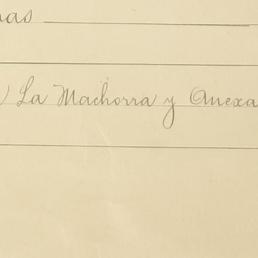 nas
) La Machorra y Anexa